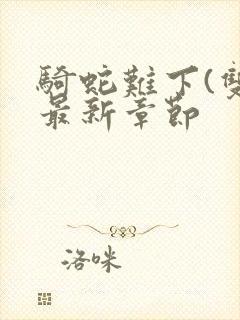 騎蛇難下(雙
最新章節
洛咪